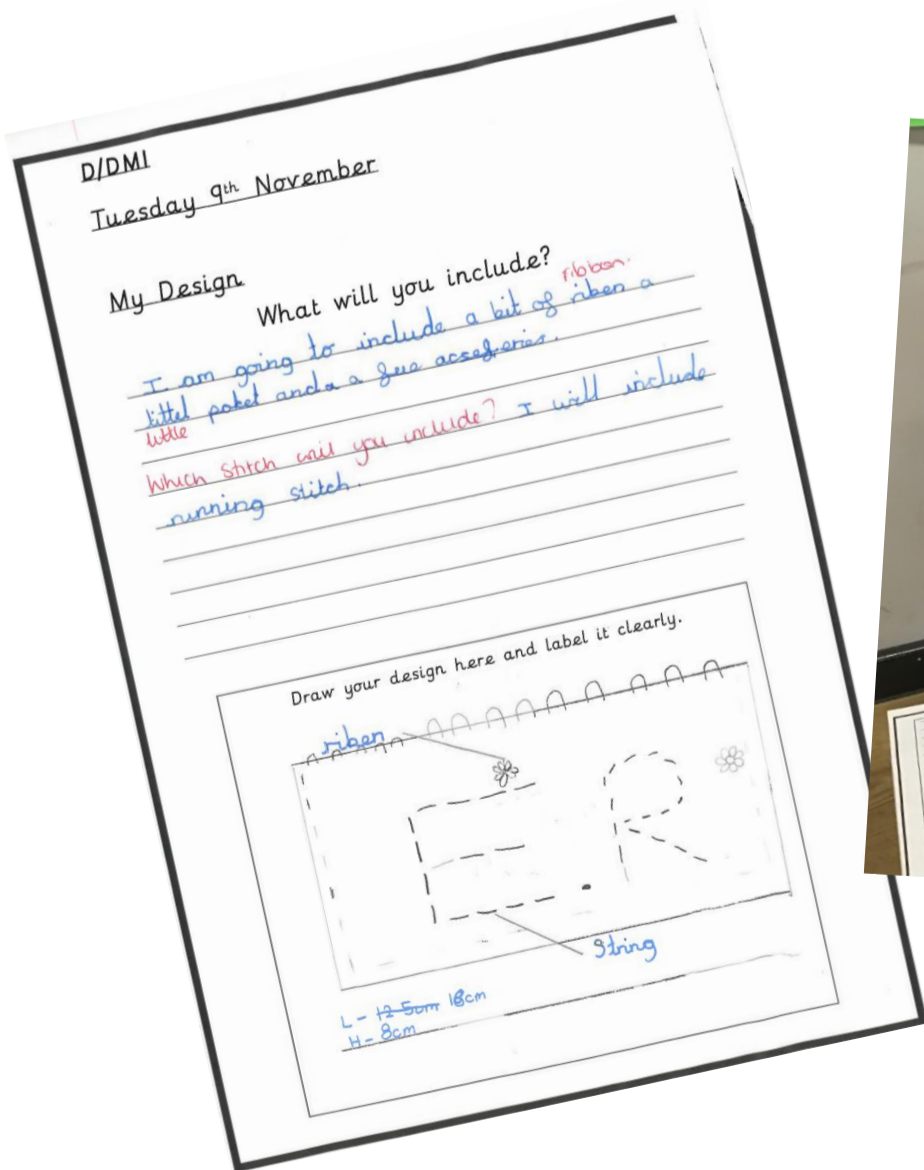 D/DMI
Tuesday 9th November
My Design
What will you include?
ribbon.
I am going to include a bit of riben a
littel poket and a a few
little
Which stitch will you include? I will include
running stitch.
Draw your design here and label it clearly.
riben
E.R
String
L - 12 5cm 18cm
H - 8cm